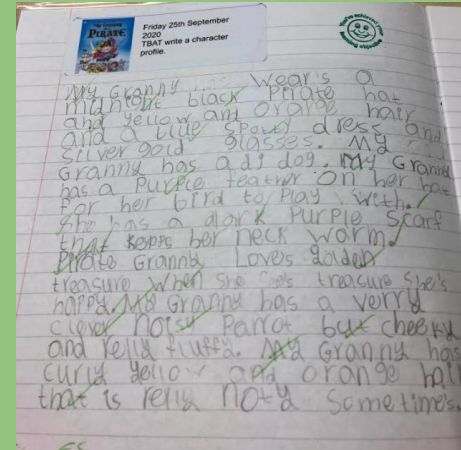 PIRATE
Friday 25th September
2020
TBAT write a character
profile.
My Granny wear's a
midnight black Pirate hat
and yellow and orange hair
and a blue spoty dress and
silver gold glasses. My
Granny has a dog. My Granny
has a Purple feather on her hat
for her bird to Play with.
She has a dark Purple Scarf
that her neck warm.
Pirate Granny Loves
treasure when she treasure she's
happy. My Granny has a verry
clever noisy Parrot but cheeky
and relly fluffy. My Granny has
curly yellow and orange hair
that is relly noty sometimes.